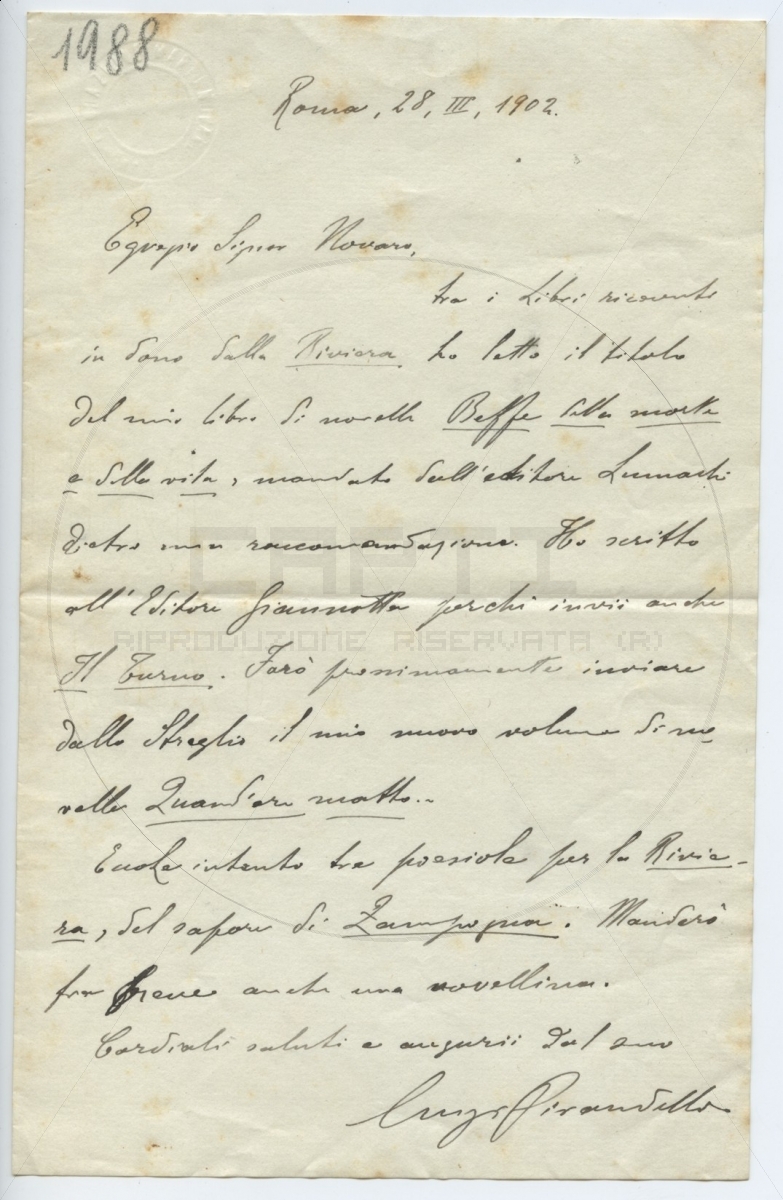 1988
Roma, 28, III, 1902.
Egregio Signor Novaro,
tra i libri ricevuti
in dono dalla Riviera ho letto il titolo
del mio libro di novelle Beffe della morte
e della vita, mandato dall'editore Lumachi
dietro mia raccomandazione. Ho scritto
all'Editore Giannotta perchè invii anche
Il Turno. Farò prossimamente inviare
dallo Streglio il mio nuovo volume di no
velle Quand'ero matto..
Eccole intanto tre poesiole per la Rivie-
ra, del sapore di Zampogna. Manderò
fra breve anche una novellina.
Cordiali saluti e augurii dal suo
Luigi Pirandello
CARTI
RIPRODUZIONE RISERVATA (R)